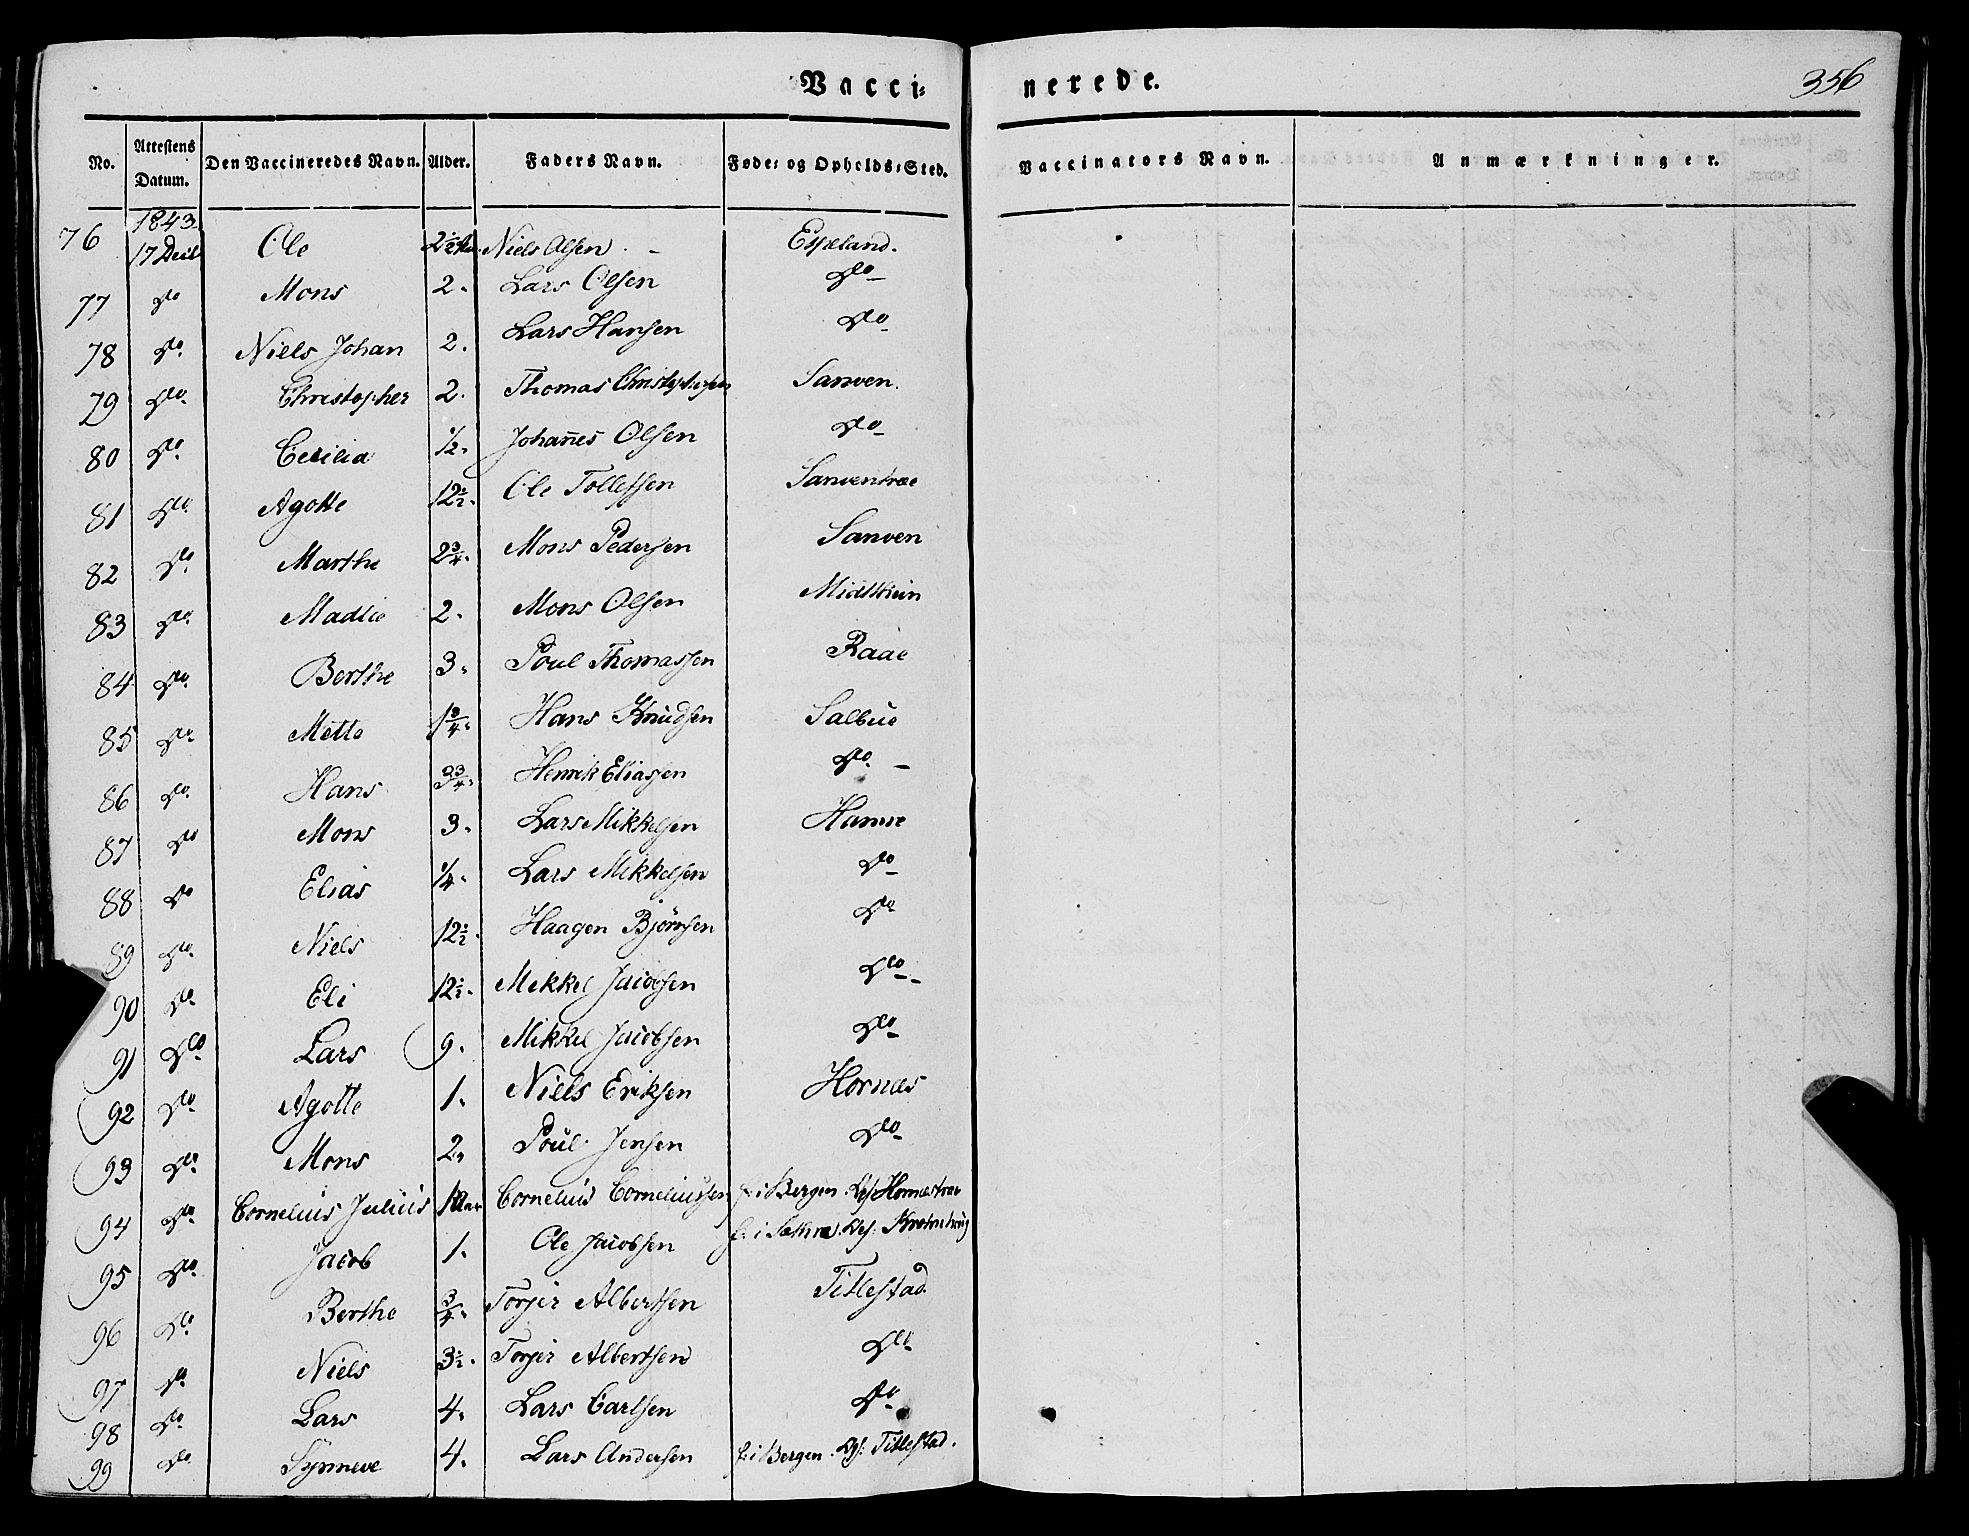 Vacci- nerede. 356
No. Attestens Datum. Den Vaccineredes Navn. Alder. Faders Navn. Føde- og Opholds-Sted. Vaccinators Navn. Anmærkninger.
1843
76 17 Ole 2½ Niels Olsen Espeland.
77 Do Mons 2. Lars Olsen Do
78 Do Niels Johan 2. Lars Hansen Do
79 Do Christopher 2. Thomas Christophersen Sanven.
80 Do Cecilia ½. Johannes Olsen Do
81 Do Agotte 12½. Ole Tollefsen Sanventræe
82 Do Marthe 2¾. Mons Pedersen Sanven
83 Do Madlie 2. Mons Olsen
84 Do Berthe 3. Poul Thomassen Raae
85 Do Mette 1¾. Hans Knudsen Salbue
86 Do Hans 3¾. Henrik Eliassen Do
87 Do Mons 3. Lars Mikkelsen Hamre
88 Do Elias ¼. Lars Mikkelsen Do
89 Do Niels 12½. Haagen Björnsen Do
90 Do Eli 12½. Mikkel Jacobsen Do
91 Do Lars 9. Mikkel Jacobsen Do
92 Do Agotte 1. Niels Eriksen Hornæs
93 Do Mons 2. Poul Jensen Do
94 Do Cornelius Julius Cornelius Corneliussen f: i Bergen.
95 Do Jacob 1. Ole Jacobsen f: i
96 Do Berthe ¾. Torger Albertsen Titlestad.
97 Do Niels 3½. Torger Albertsen Do
98 Do Lars 4. Lars Carlsen Do
99 Do Synneve 4. Lars Andersen f: i Bergen. Titlestad.